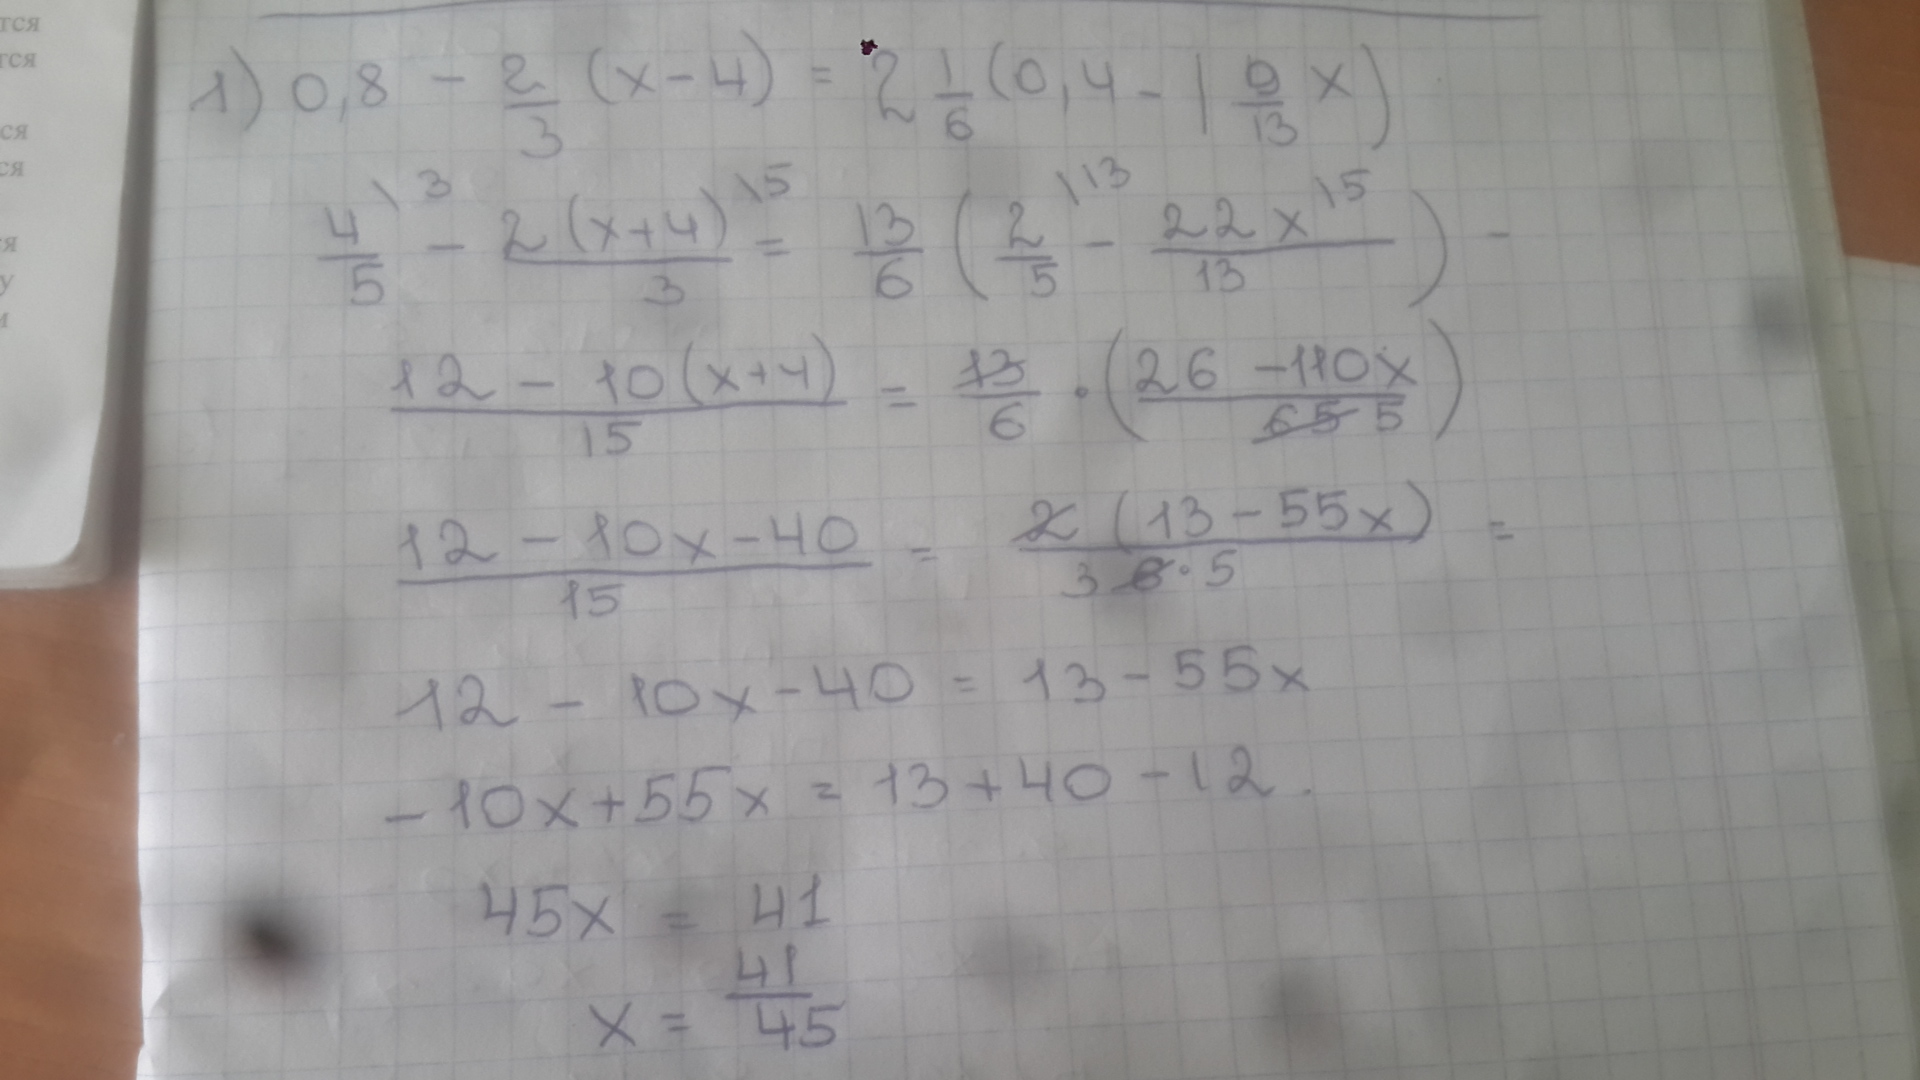 тся
тся
ся
ся
я
у
и
1) 0,8 - 2/3 (x-4) = 2 1/6 (0,4 - 1 9/13 x)
4/5 \3 - 2(x+4)/3 \5 = 13/6 (2/5 \13 - 22x/13 \5) -
12 - 10(x+4)/15 = 13/6 · (26 - 110x/65 5)
12 - 10x - 40/15 = 2(13 - 55x)/3 6·5 =
12 - 10x - 40 = 13 - 55x
- 10x + 55x = 13 + 40 - 12.
45x = 41
x = 41/45